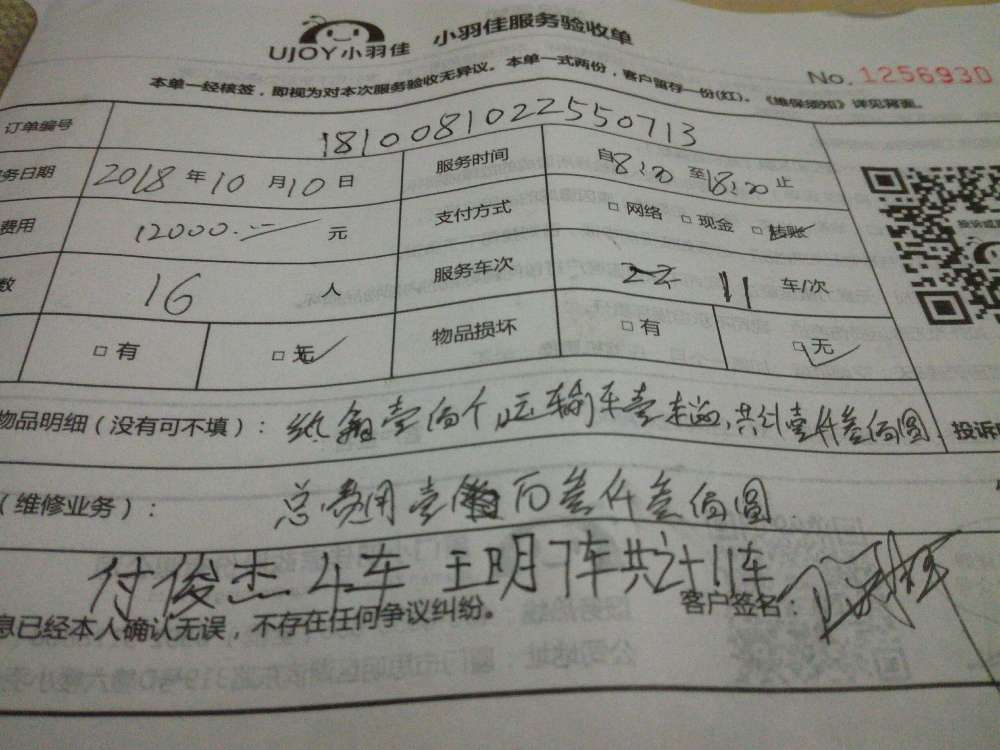 UJOY小羽佳 小羽佳服务验收单
No.1256930
本单一经核签，即视为对本次服务验收无异议。本单一式两份，客户留存一份(红)。《维保须知》详见背面。
订单编号 18100810225550713
务日期 2018年10月10日 服务时间 自8:30至18:30止
费用 12000.二 元 支付方式 □网络 □现金 □转账
数 16 人 服务车次 11 车/次
□有 □无 物品损坏 □有 □无
物品明细（没有可不填）： 纸箱壹佰个 运输车壹趟，共计壹仟叁佰圆 投诉
（维修业务）： 总费用壹 万叁仟叁佰圆
付俊杰4车 王明7车共计11车
息已经本人确认无误，不存在任何争议纠纷。 客户签名：